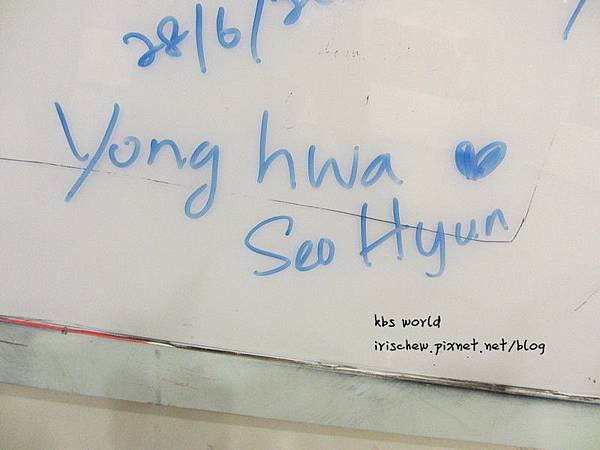 28/6/20
Yonghwa ♥
SeoHyun
kbs world
irischew.pixnet.net/blog